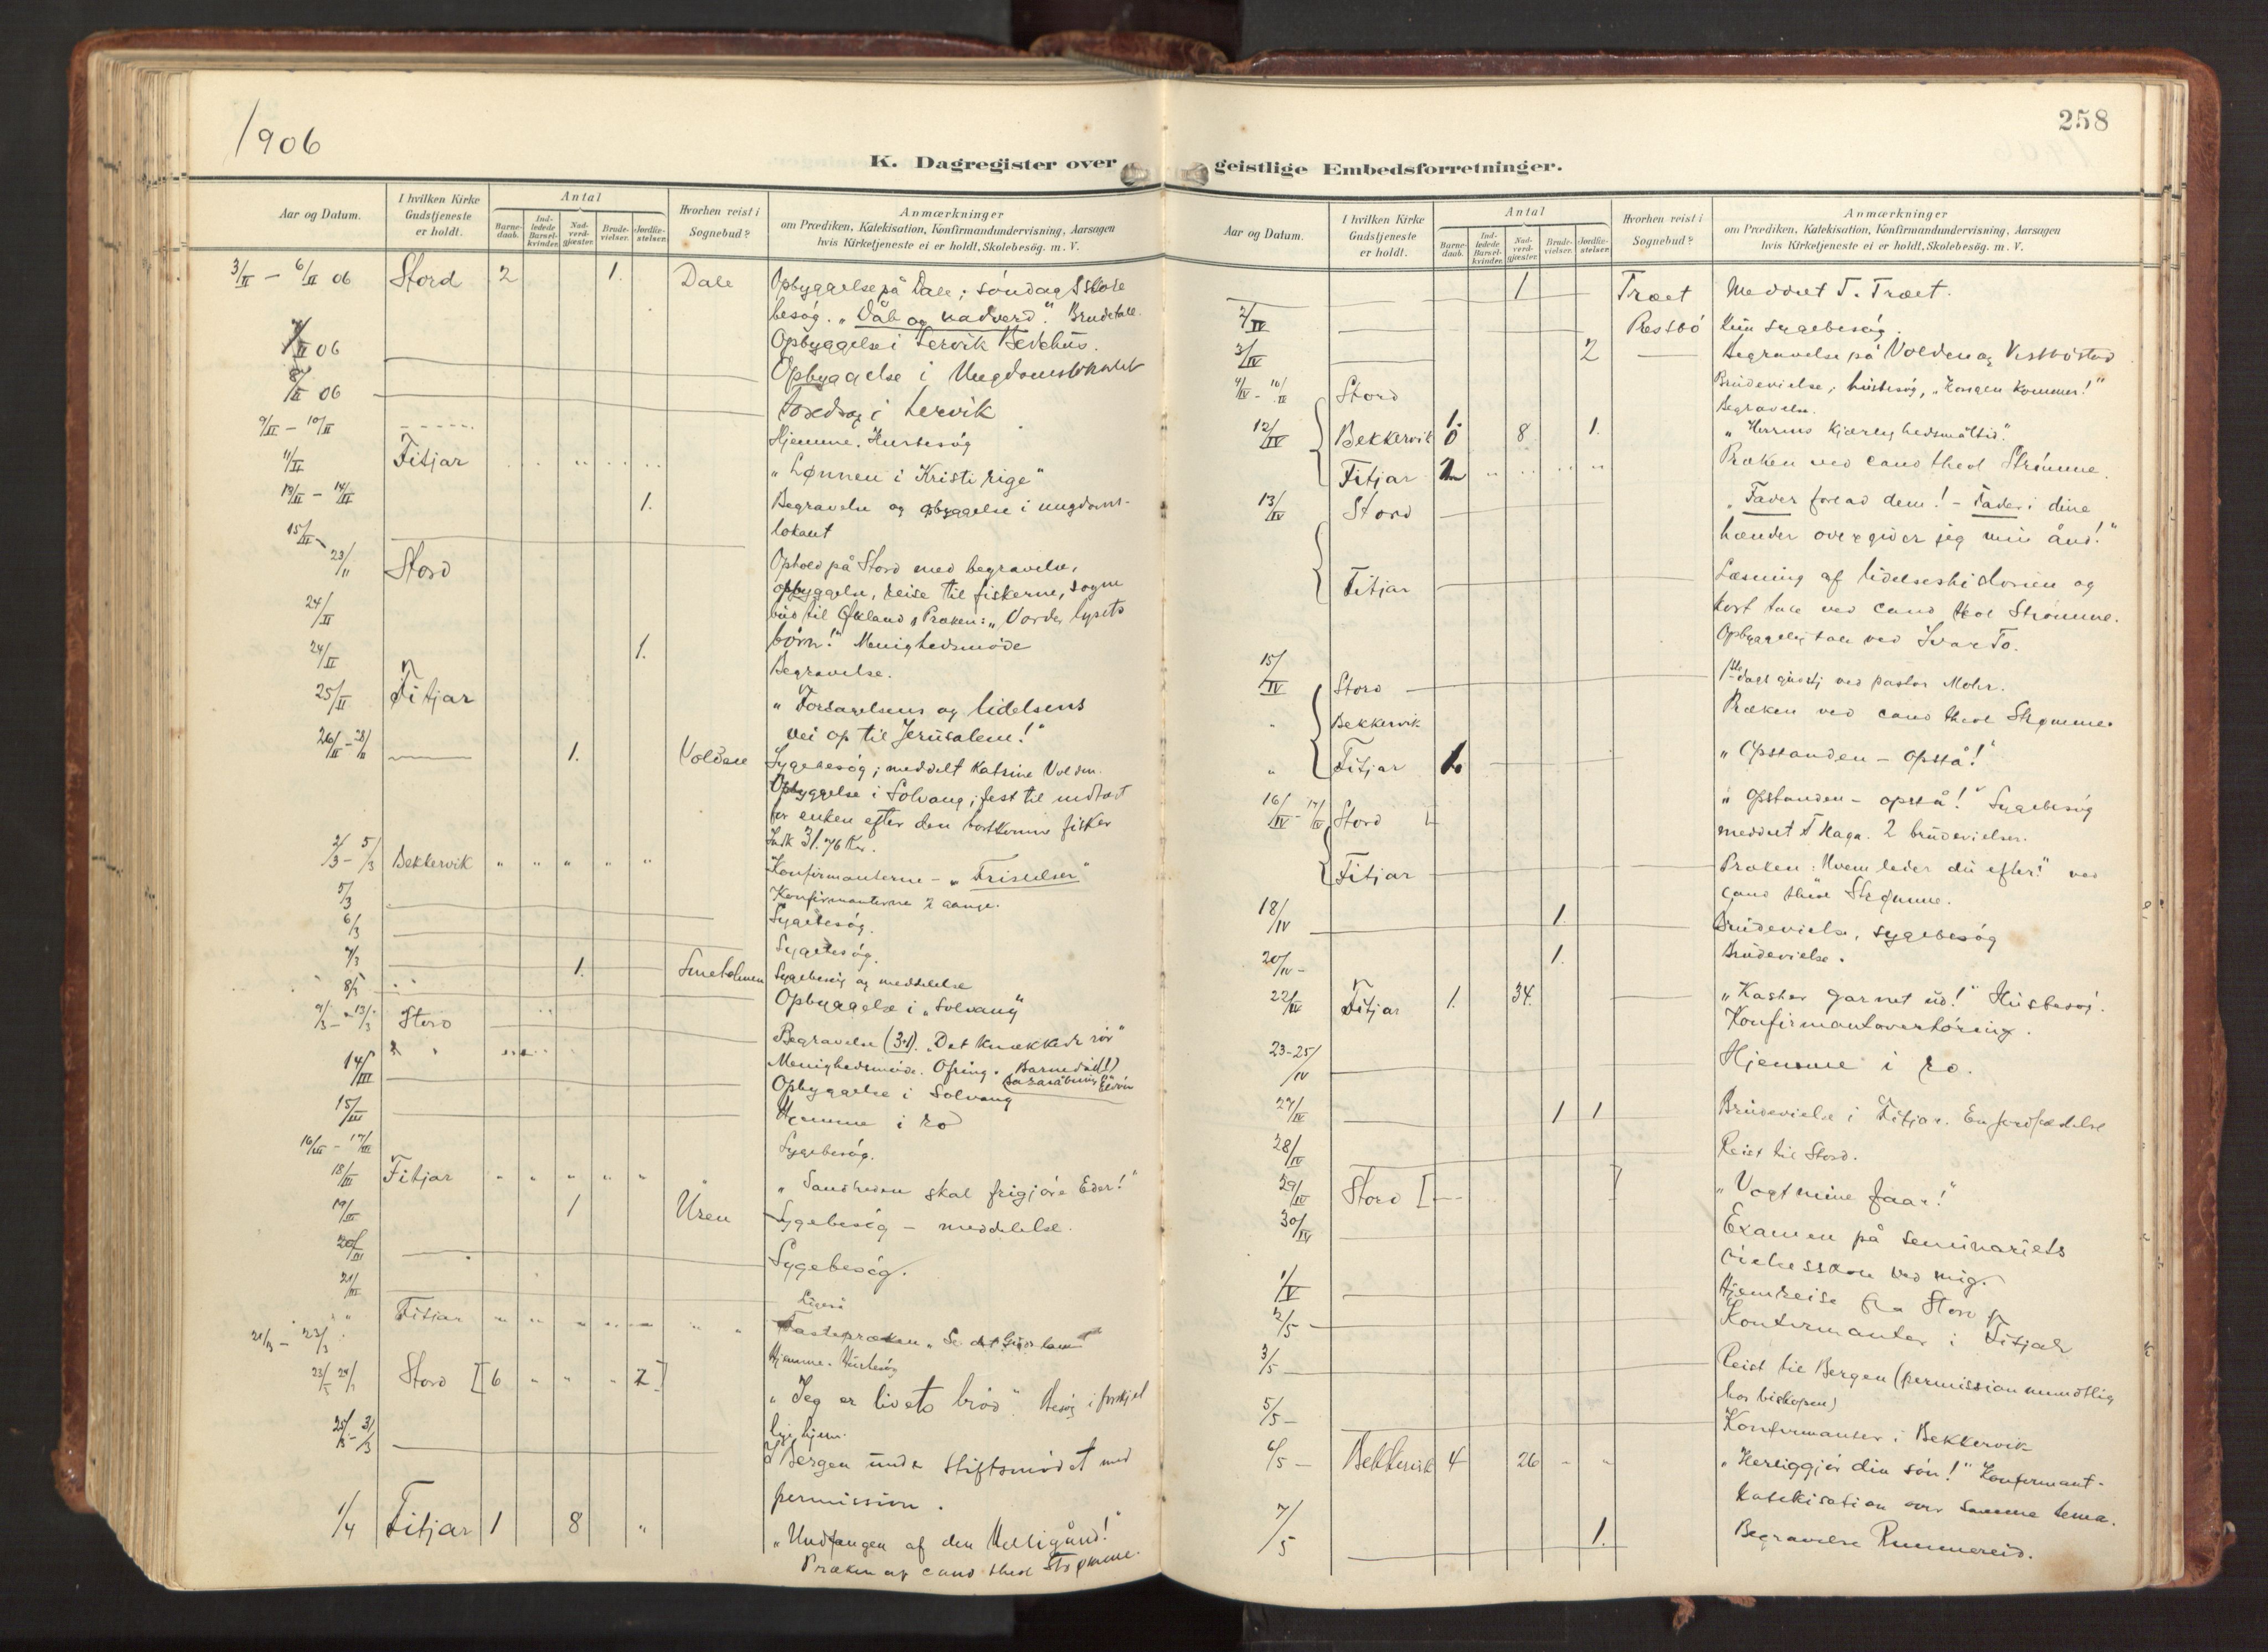 1906
258
K. Dagregister over geistlige Embedsforretninger.
Aar og Datum.
I hvilken Kirke Gudstjeneste er holdt.
Antal
Barne-daab.
Ind-ledede Barsel-kvinder.
Nad-verd-gjæster.
Brude-vielser.
Jordfæ-stelser.
Hvorhen reist i Sognebud?
Anmærkninger
om Prædiken, Katekisation, Konfirmandundervisning, Aarsagen
hvis Kirketjeneste ei er holdt, Skolebesög. m. V.
3/II – 6/II 06 Stord 2 1. Dale Opbyggelse på Dale; söndag Sskole
besög. „Dåb og nadverd." Brudetale.
7/II 06 Opbyggelse i Lervik Bedehus.
8/II 06 Opbyggelse i Ungdomslokalet
Foredrag i Lervik
9/II – 10/II Hjemme. Husbesög
11/II Fitjar „Lønnen i Kristi rige"
13/II – 14/II 1. Begravelse og opbyggelse i ungdoms-
lokalet
15/II –
23/II Stord Ophold på Stord med begravelse,
opbyggelse, reise til fiskerne, sogne
24/II bud til Økland, Præken: „Vorder lysets
börn!" Menighedsmöde
24/II 1. Begravelse.
25/II Fitjar „Forsagelsens og lidelsens
vei op til Jerusalem!"
26/II – 28/II 1. Volden Sygebesög; meddelt Katrine Volden.
Opbyggelse i Solvang; fest til indtægt
for enken efter den bortkomne fisker
Indk 31.76 Kr.
2/3 – 5/3 Bekkervik " " " " " Konfirmanterne – „Fristelser"
5/3 Konfirmanterne 2 gange.
6/3 Sygebesög.
7/3 Sygebesög.
8/3 1. Smeholmen Sygebesög og meddelelse
Opbyggelse i „Solvang"
9/3 – 13/3 Stord Begravelse (3+1). „Det knækkede rör"
Menighedsmöde. Ofring. Barnedåb(1)
14/III Opbyggelse i Solvang
15/III Hjemme i ro
16/III – 17/III Sygebesög.
18/III Fitjar " " " " " „Sandheden skal frigjöre Eder!"
19/III 1 Uren Sygebesög – meddelelse.
20/III Sygebesög.
21/III Ligeså
" " Fitjar " " " " " " Fastepræken „Se det Guds lam"
21/3 – 23/3 Hjemme. Husbesög
23/3 24/3 Stord [6 " " " 2] „Jeg er livets bröd". Besög i forskjel
lige hjem.
25/3 – 31/3 I Bergen under stiftsmödet med
permission.
1/4 Fitjar 1 8 " „Undfangen af den Helligånd!"
Præken af cand theol Strømme.
Aar og Datum.
I hvilken Kirke Gudstjeneste er holdt.
Antal
Barne-daab.
Ind-ledede Barsel-kvinder.
Nad-verd-gjæster.
Brude-vielser.
Jordfæ-stelser.
Hvorhen reist i Sognebud?
Anmærkninger
om Prædiken, Katekisation, Konfirmandundervisning, Aarsagen
hvis Kirketjeneste ei er holdt, Skolebesög. m. V.
1 Træet Meddelt T. Træet.
2/IV Prestbö Kun sygebesög.
3/IV 2 Begravelse på Volden og Vestböstad
4/IV – 10/IV Stord Brudevielse; husbesög, „Kongen kommer!"
Begravelse.
12/IV Bekkervik 1. 8 1. „Herrens kjærlighedsmåltid".
Fitjar Præken ved cand theol Strömme.
13/IV Stord „Fader forlad dem! – Fader i dine
hænder overgiver jeg min ånd!"
Fitjar Læsning af lidelseshistorien og
kort tale ved cand theol Strömme.
Opbyggelig tale ved Ivar To.
15/IV Stord 1ste dags gudstj ved pastor Mohr.
" Bekkervik Præken ved cand theol Strømme.
" Fitjar 1. „Opstanden – opstå!"
16/IV – 17/IV Stord „Opstanden – opstå!" Sygebesög
meddelt T Haga. 2 brudevielser.
Fitjar Præken: Hvem leder du efter!" ved
cand theol Strømme.
18/IV 1. Brudevielse, sygebesög
20/IV – 1. Brudevielse.
22/IV Fitjar 1. 34. „Kaster garnet ud!" Husbesög.
Konfirmantoverhöring.
23-25/IV Hjemme i ro.
27/IV 1 1 Brudevielse i Fitjar. En jordfæstelse
28/IV Reist til Stord.
29/IV Stord [ – – ] „Vogt mine faar!"
30/IV Examen på seminariets
ved mig.
1/V Hjemreise fra Stord
2/5 – Konfirmanter i Fitjar
3/5 – Reist til Bergen (permission mundtlig
hos biskopen)
5/5 – Konfirmanter i Bekkervik
6/5 – Bekkervik 4 26 " " „Herliggjör din sön!" Konfirmant-
katekisation over samme tema.
7/5 1. Begravelse Rummereid.